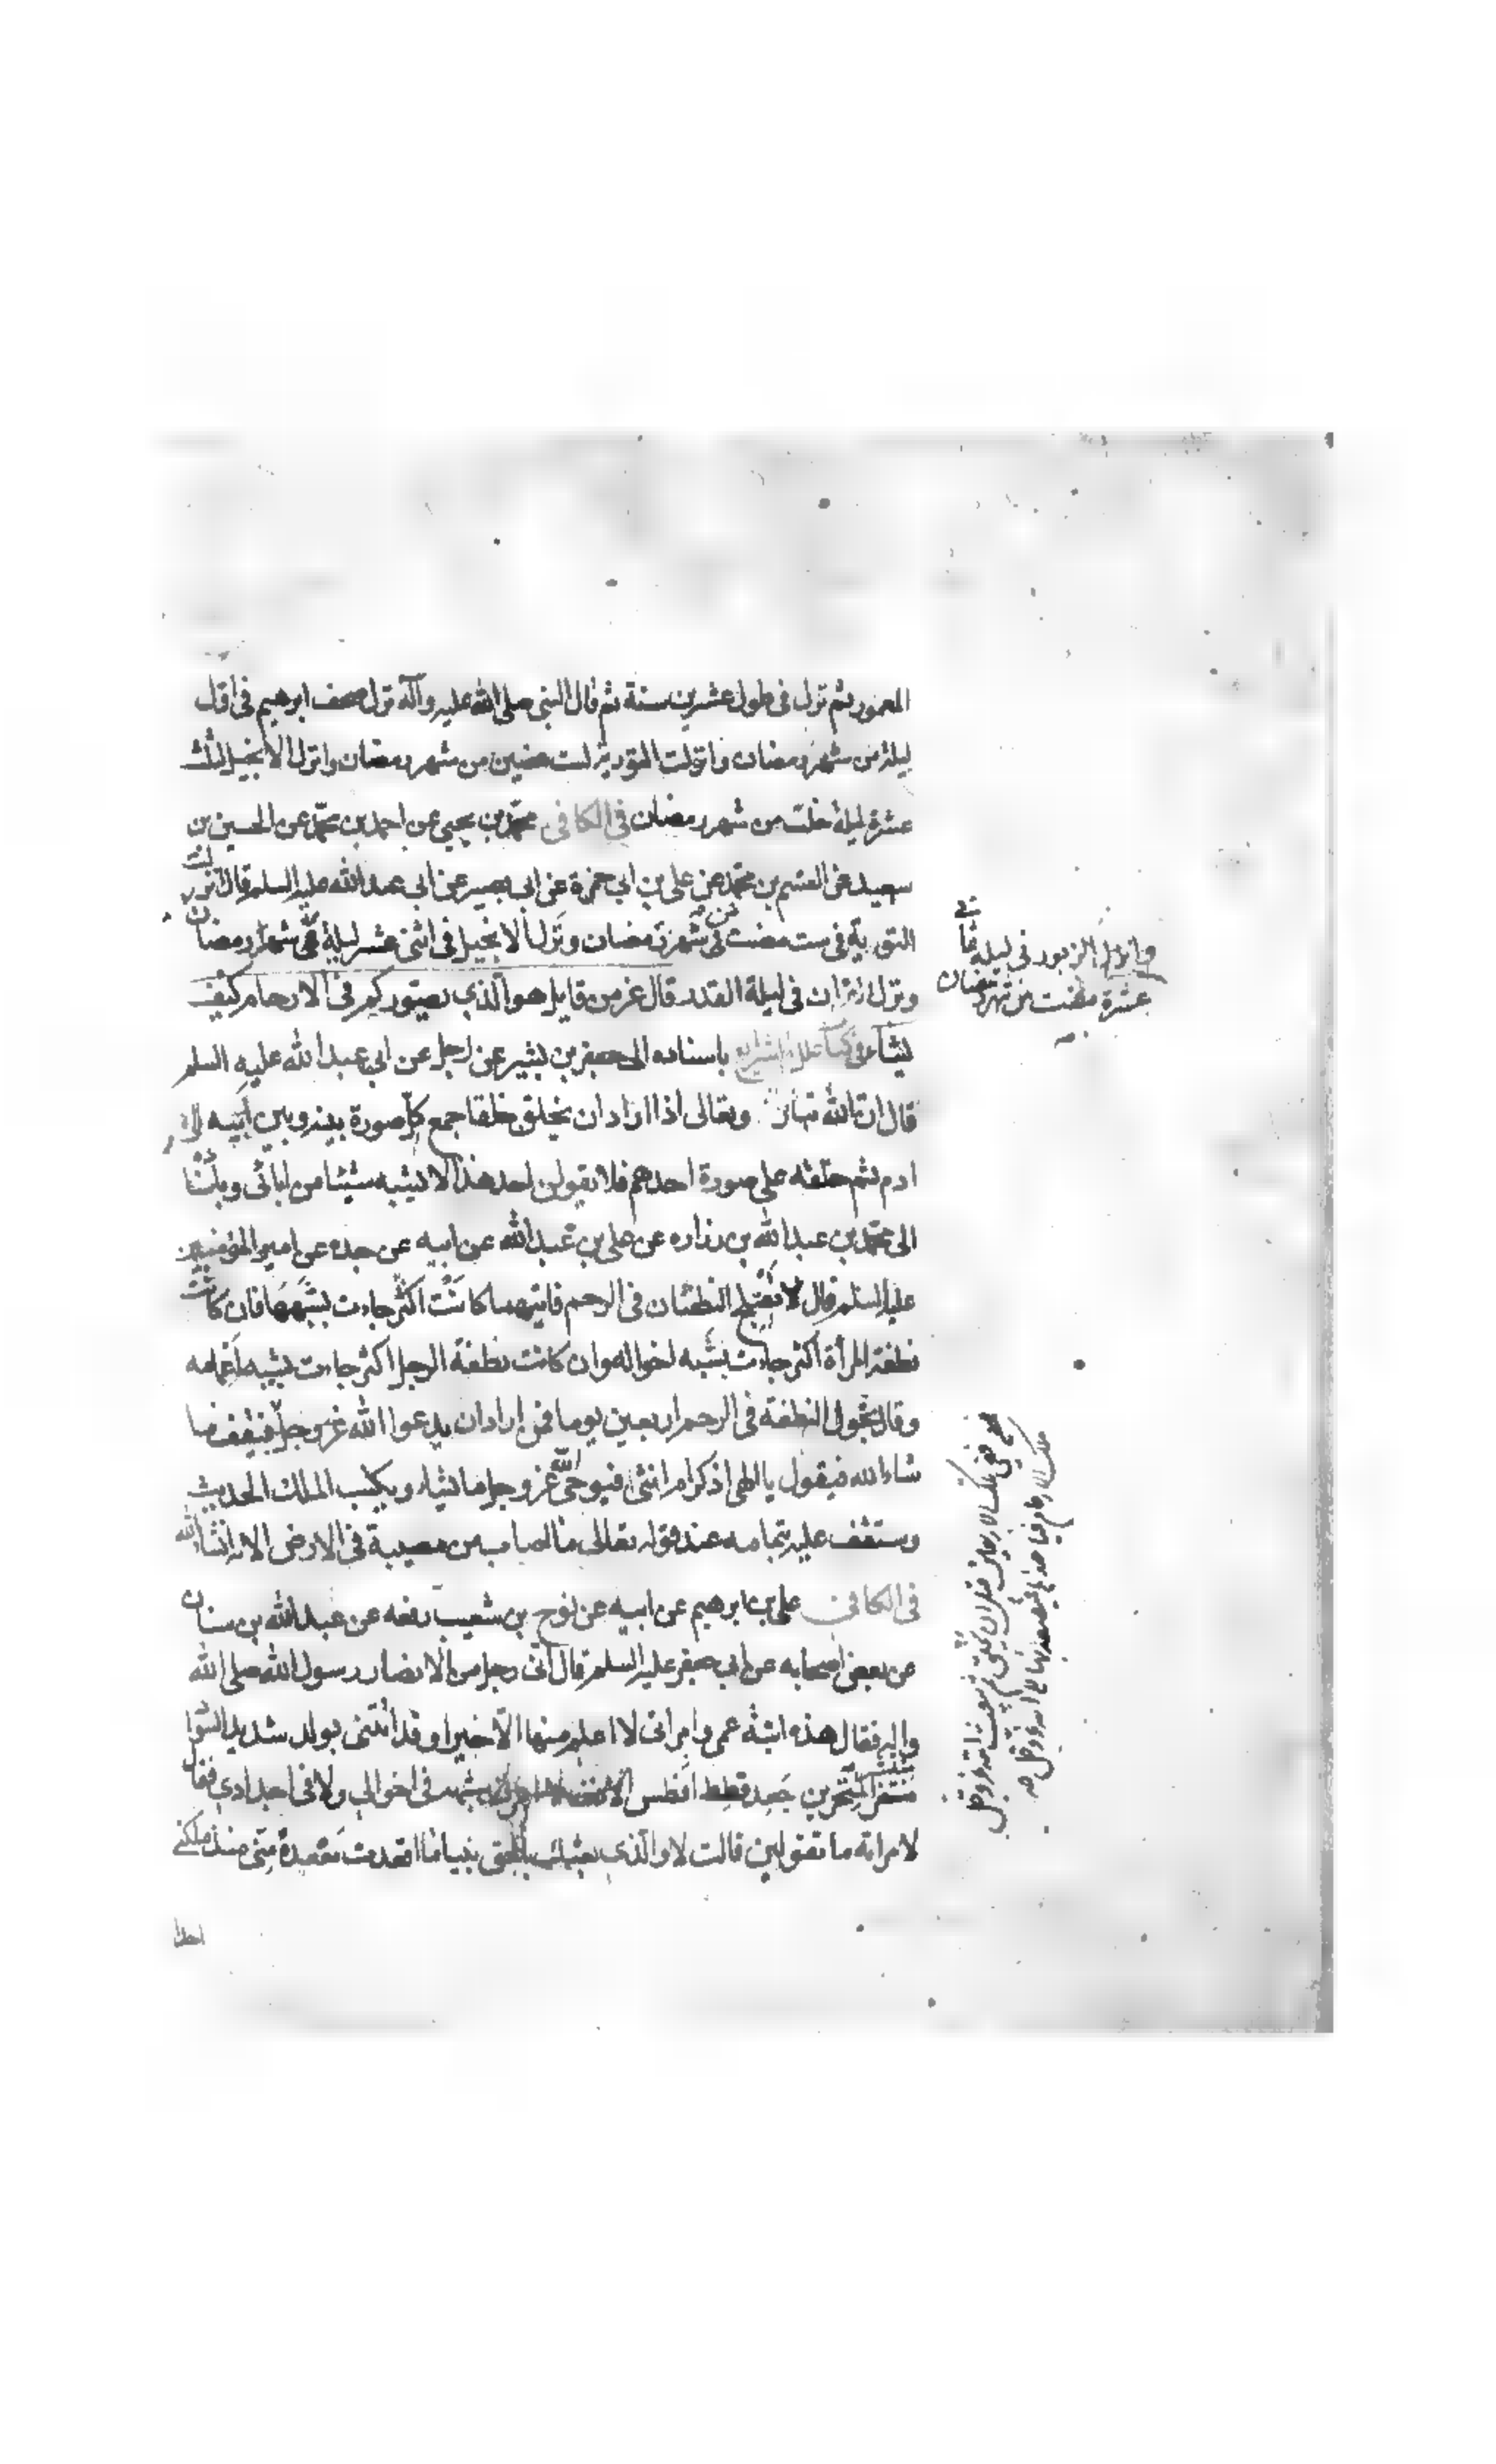 المعمور ثم نزل فى طول عشرين سنة ثم قال النبى صلى الله عليه وآله نزل صحف ابرهيم فى اول
ليلة من شهر رمضان وانزلت التورية لست مضين من شهر رمضان وانزل الانجيل لثلث
عشرة ليلة خلت من شهر رمضان فى الكافى محمد بن يحيى عن احمد بن محمد عن الحسين بن
سعيد عن القسم بن محمد عن على بن ابى حمزة عن ابى بصير عن ابى عبد الله عليه السلم قال نزلت
التورية فى ست مضت من شهر رمضان ونزل الانجيل فى اثنى عشر ليلة من شهر رمضان
ونزل القران فى ليلة القدر قال عز من قايل هو الذي يصوركم فى الارحام كيف
يشآء فى كتاب علل الشرايع باسناده الى جعفر بن بشير عن رجل عن ابى عبد الله عليه السلم
قال ان الله تبارك وتعالى اذا اراد ان يخلق خلقا جمع كل صورة بينه وبين ابيه الى
ادم ثم خلقه على صورة احدهم فلا يقولن احد هذا لا يشبه شيئا من ابائى وباسناده
الى محمد بن عبد الله بن زراره عن على بن عبد الله عن ابيه عن جده عن امير المؤمنين
عليه السلم قال النطفتان فى الرحم فايتهما كانت اكثر جاءت بشبهها فان كانت
نطفة المرأة اكثر جاءت بشبه اخواله وان كانت نطفة الرجل اكثر جاءت بشبه اعمامه
وقال تجول النطفة فى الرحم اربعين يوما فمن اراد ان يدعوا الله عز وجل ففى
شاء الله فيقول يا الهى اذكر ام انثى فيوحى الله عز وجل ما يشاء ويكتب الملك الحديث
وستقف عليه بتمامه عند قوله تعالى ما اصاب من مصيبة فى الارض الاية انشاء الله
فى الكافى على بن ابرهيم عن ابيه عن نوح بن شعيب رفعه عن عبد الله بن سنان
عن بعض اصحابه عن ابى جعفر عليه السلم قال اتى رجل من الانصار رسول الله صلى الله
واله فقال هذه ابنة عمى وامراتى لا اعلم منها الا خيرا وقد اتتنى بولد شديد السواد
منتشر المنخرين جعد قطط افطس الانف لا اعرف شبهه فى اخوالى ولا فى اجدادي فقال
لامراته ما تقولين قالت لا والذي بعثك بالحق نبيا ما اقعدت مقعدة منى منذ ملكنى
احدا
وانزل الزبور فى ليلة ثمانى
عشرة مضت من شهر رمضان
صح ففى تلك الاربعين قبل ان تخلق ثم يبعث الله عز وجل
ملك الارحام فياخذها فيصعد بها الى الله عز وجل